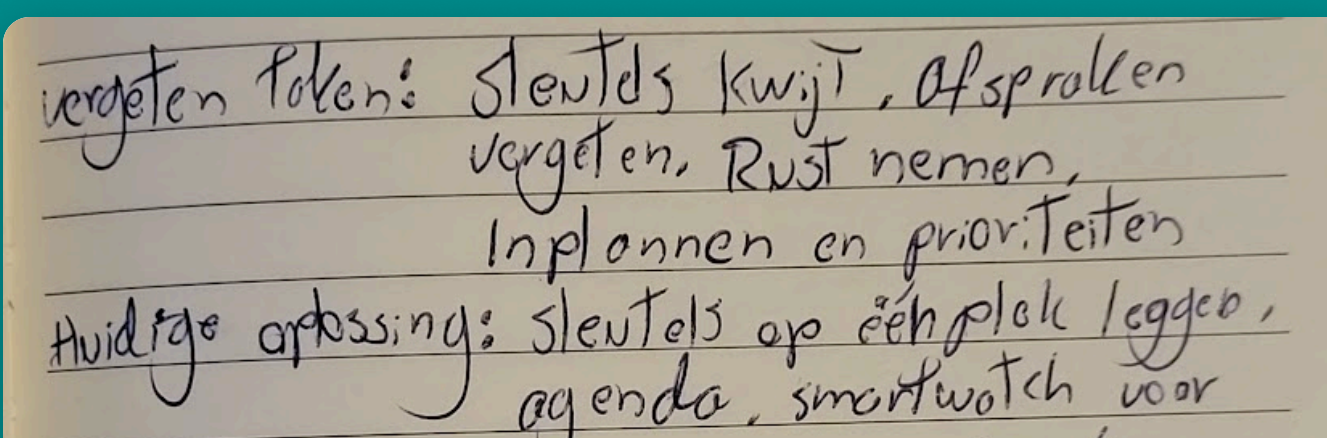 vergeten taken: Sleutels kwijt, Afspraken
vergeten, Rust nemen,
Inplannen en prioriteiten
Huidige oplossing: sleutels op één plek leggen,
agenda, smartwatch voor